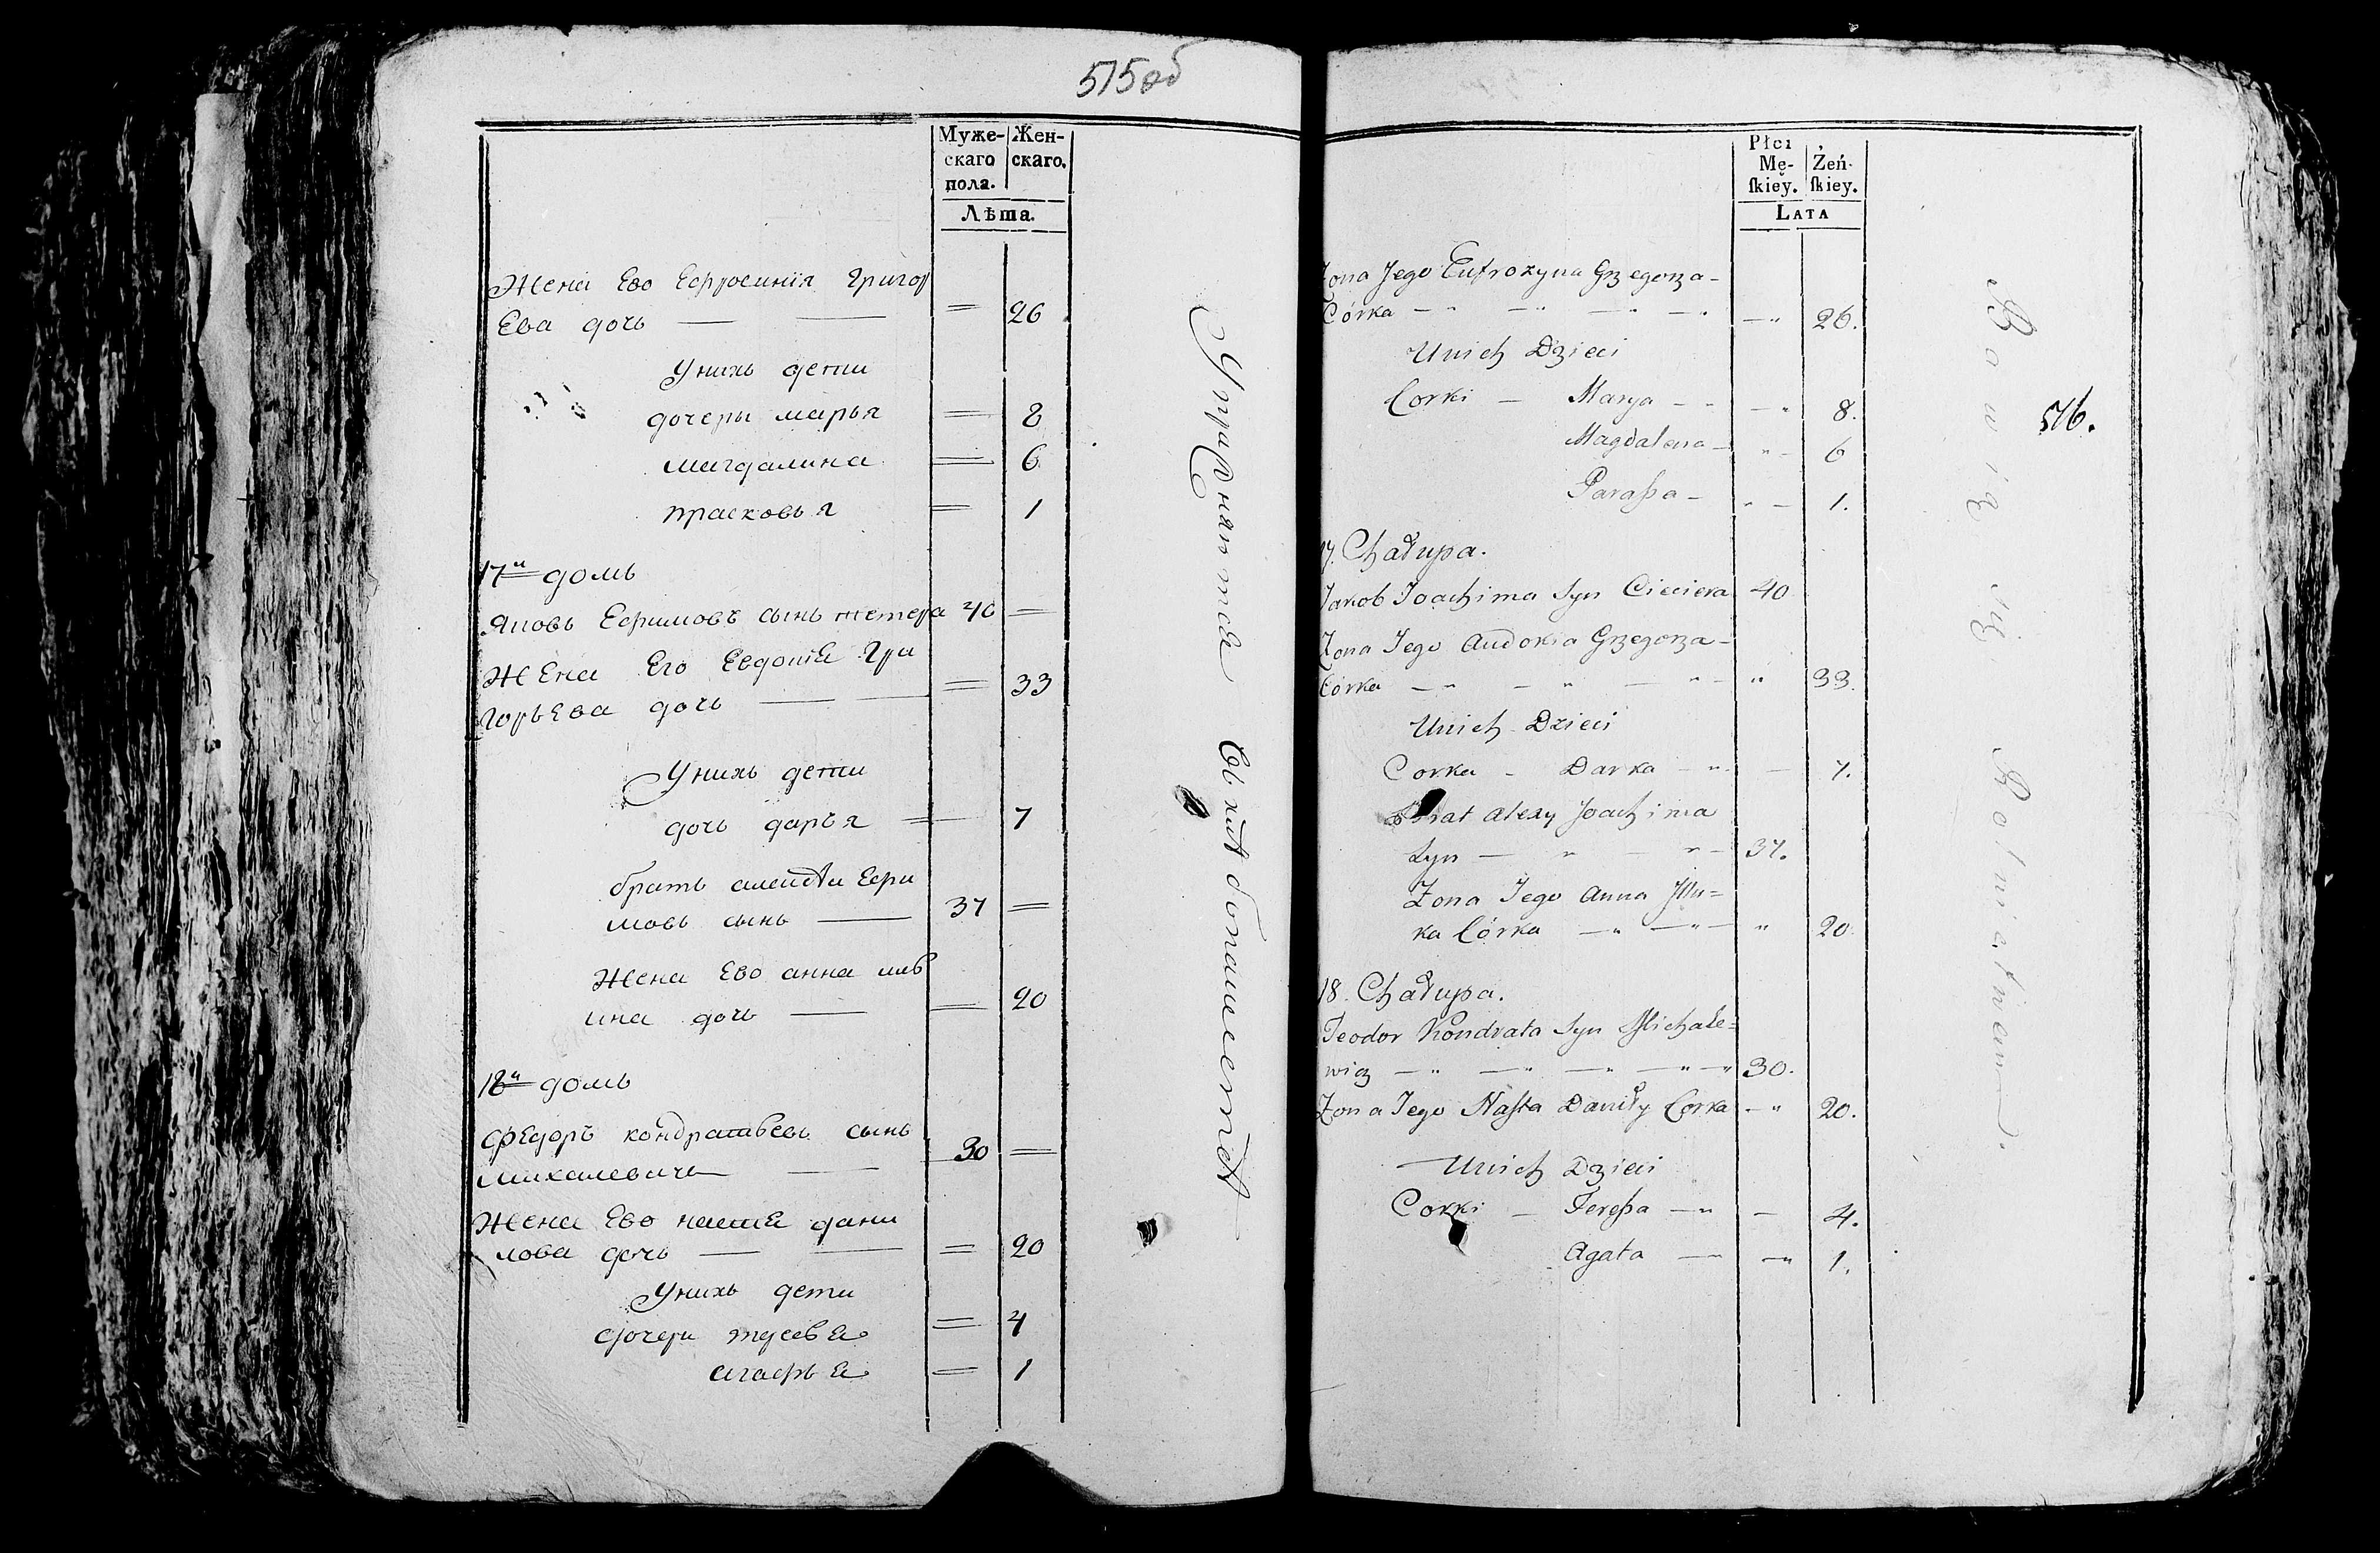 515об
Муже-
скаго
пола.
Жен-
скаго.
Лѣта.
Жена Ево Ефросинія Григор
Ева дочь — — = 26
Унихъ дети
дочеры марья = 8
магдалина = 6
прасковья = 1
17й домъ
Яковъ Ефимовъ сынъ тетера 40 =
Жена Его Евдокія Гри
горьЕва дочь — = 33
Унихъ дети
дочь дарья = 7
братъ алексѣй Ефи
мовъ сынъ — 37 =
Жена Ево анна иль
ина дочь — = 20
18й домъ
Федоръ кондратьевъ сынъ
михалевичъ — 30 =
Жена Ево настя дани
лова дочь — — = 20
Унихъ дети
дочери = 4
агафья = 1
Упражнянтся въ хлѣбопашествѣ
Płci
Mę-
skiey.
Żeń-
skiey.
LATA
Żona Jego Eufrozyna Grzegorza-
Córka — " — " — " — " — " 26.
Unich Dzieci
Corki — Marya — - — " 8.
Magdalena — " - 6
Parassa — " — 1.
17. Chałupa.
Jakob Joachima Syn Cieciera 40
Żona Jego Audokia Grzegorza-
Córka — " — " — " — " 33.
Unich Dzieci
Corka — Darka — " — 7.
Brat Alexy Joachima
Syn — " — " — 37.
Żona Jego Anna Illu=
ka Córka — " — " — " 20.
18. Chałupa.
Teodor Kondrata Syn Michale=
wicz — " — " — " — " — " 30.
Żona Jego Nasta Daniły Córka — " 20.
Unich Dzieci
Corki — Teressa — " — 4.
Agata — — " 1.
Bawią się Rolnictwem.
516.